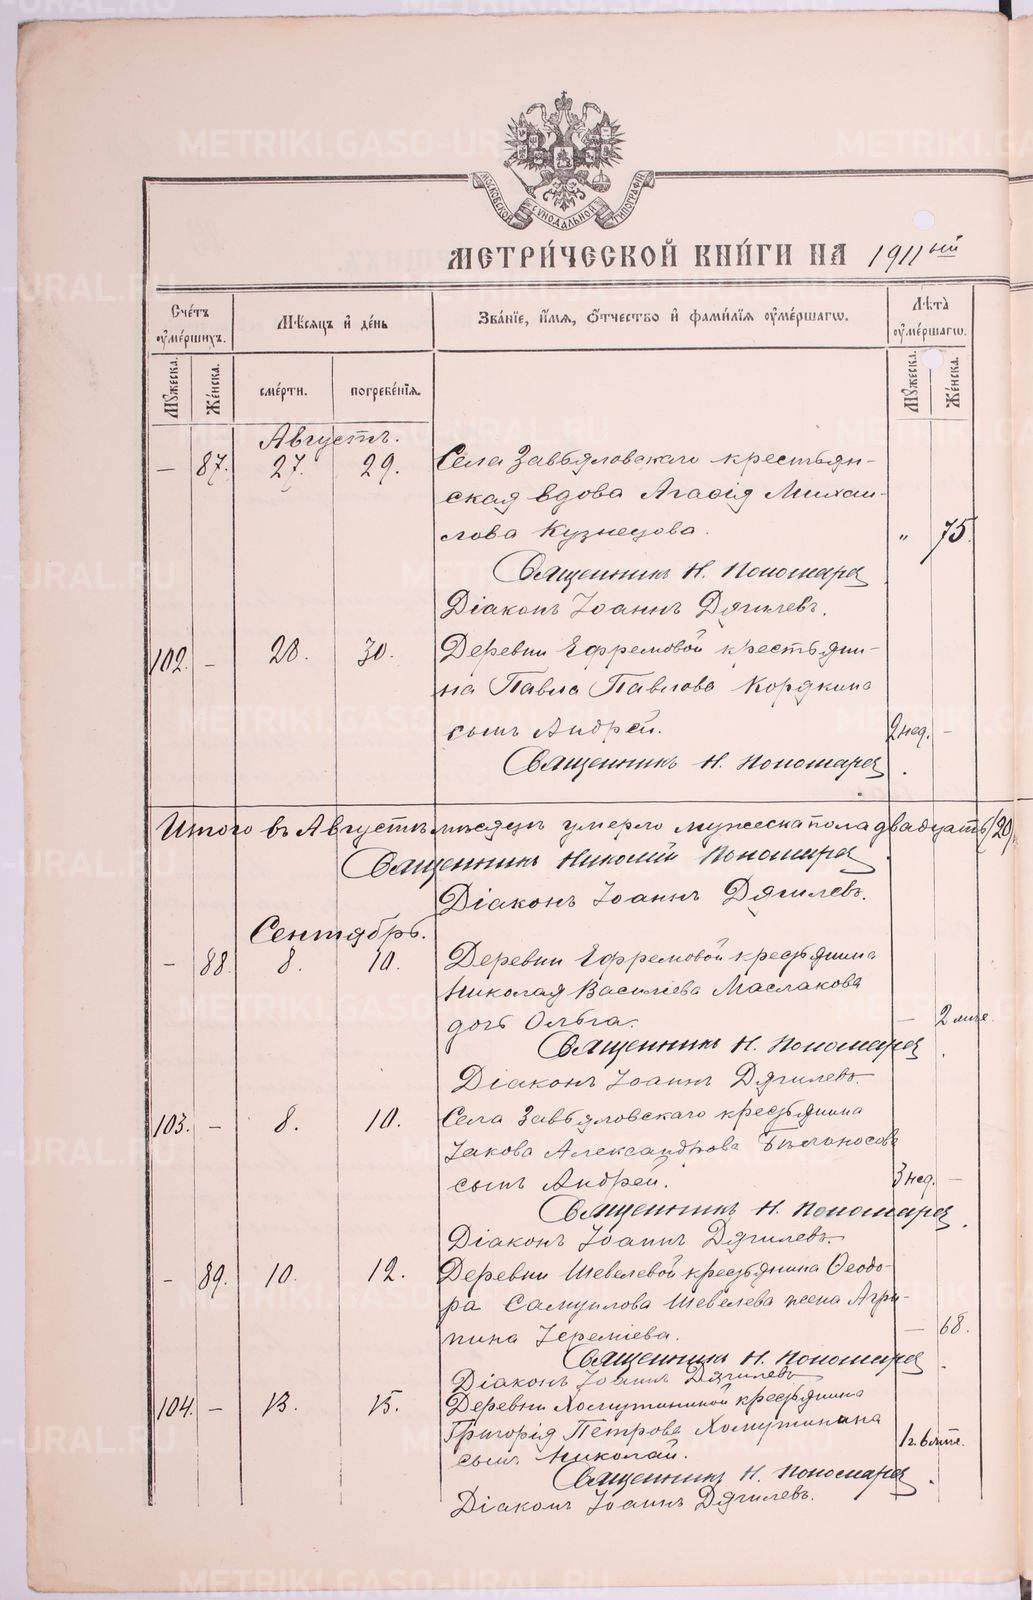 METRIKI.GASO-URAL.RU
МОСКОВСКОЙ СѴНОДАЛЬНОЙ ТИПОГРАФІИ
МЕТРИ́ЧЕСКОЙ КНИ́ГИ НА 1911ый
Сче́тъ ѹ҆ме́ршихъ.
Мѣ́сяцъ и҆ де́нь
Зва́нїе, и҆́мѧ, ѻ҆́тчество и҆ фами́лїѧ ѹ҆ме́ршагѡ.
Лѣ́та ѹ҆ме́ршагѡ.
Мꙋ́жеска.
Же́нска.
сме́рти.
погребе́нїѧ.
Мꙋ́жеска.
Же́нска.
Августъ.
— 87. 27. 29. Села Завьяловскаго крестьян-
ская вдова Агафія Михаи-
лова Кузнецова. „ 75.
Священникъ Н. Пономарев
Діаконъ Іоаннъ Дягилевъ.
102. — 28. 30. Деревни Ефремовой крестьяни-
на Павла Павлова Корякина
сынъ Андрей. 2 нед. —
Священникъ Н. Пономарев
Итого въ Августѣ мѣсяцѣ умерло мужеска пола двадцать (20),
Священникъ Николай Пономарев
Діаконъ Іоаннъ Дягилевъ.
Сентябрь.
— 88. 8. 10. Деревни Ефремовой крестьянина
Николая Василіева Маслакова
дочь Ольга. — 2 мисс.
Священникъ Н. Пономарев
Діаконъ Іоаннъ Дягилевъ.
103. — 8. 10. Села Завьяловскаго крестьянина
Іакова Александрова Бѣлоносова
сынъ Андрей. 3 нед. —
Священникъ Н. Пономарев
Діаконъ Іоаннъ Дягилевъ.
— 89. 10. 12. Деревни Шевелевой крестьянина Ѳеодо-
ра Самуилова Шевелева жена Агри-
пина Іереміева. — 68.
Священникъ Н. Пономарев
Діаконъ Іоаннъ Дягилевъ
104. — 13. 15. Деревни Хомутининой крестьянина
Григорія Петрова Хомутинина
сынъ Николай. 1 г.
Священникъ Н. Пономарев
Діаконъ Іоаннъ Дягилевъ.